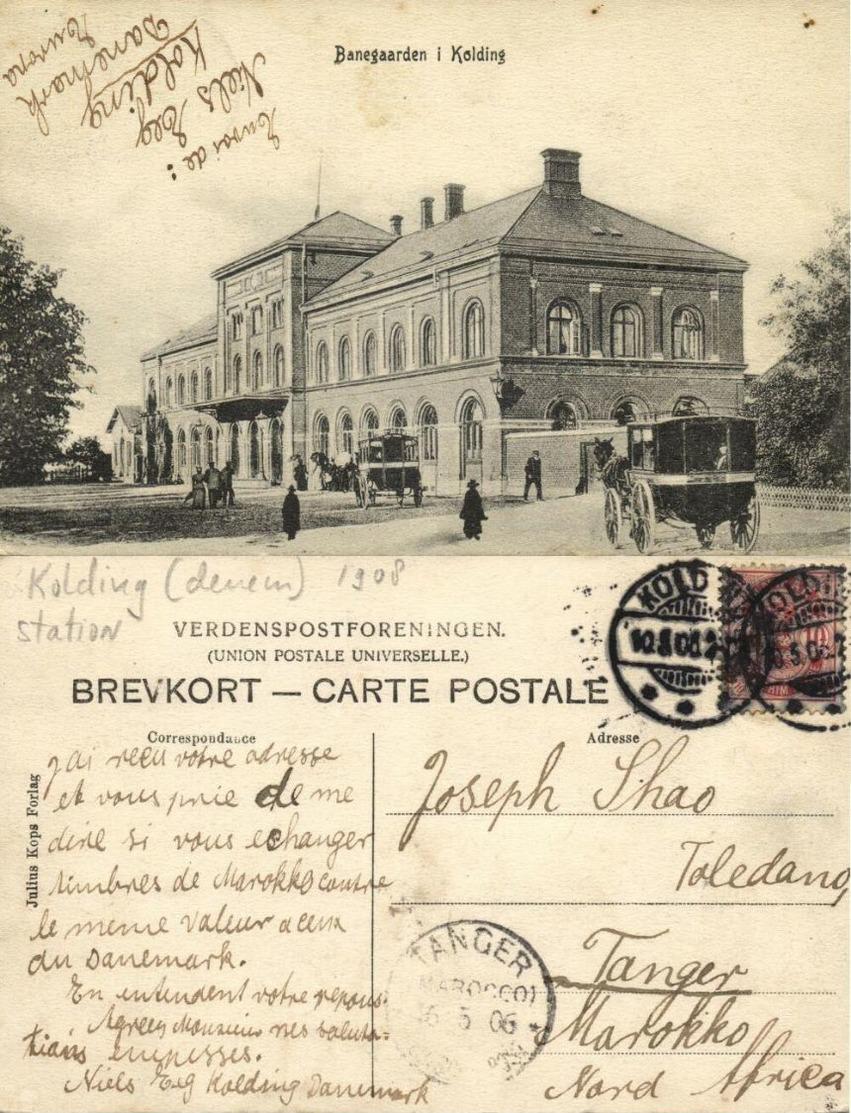 Banegaarden i Kolding
Envoi de:
Niels Eeg
Kolding
Danemark
Europa
Kolding (denem) 1908
station
VERDENSPOSTFORENINGEN.
(UNION POSTALE UNIVERSELLE.)
BREVKORT — CARTE POSTALE
KOLDIN
Correspondance
Adresse
Julius Kops Forlag
J'ai reçu votre adresse
et vous prie de me
dire si vous echanger
timbres de Marokko contre
le meme valeur a ceux
du Danemark.
En entendent votre repons.
Agreez Monsieur mes saluta-
tions empesses.
Niels Eeg Kolding Danemark
Joseph Shao
Toledano
Tanger
Marokko
Nord Africa
TANGER
(MAROCCO)